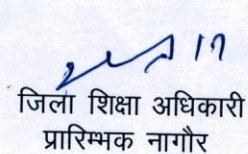 जिला शिक्षा अधिकारी
प्रारिम्भक नागौर